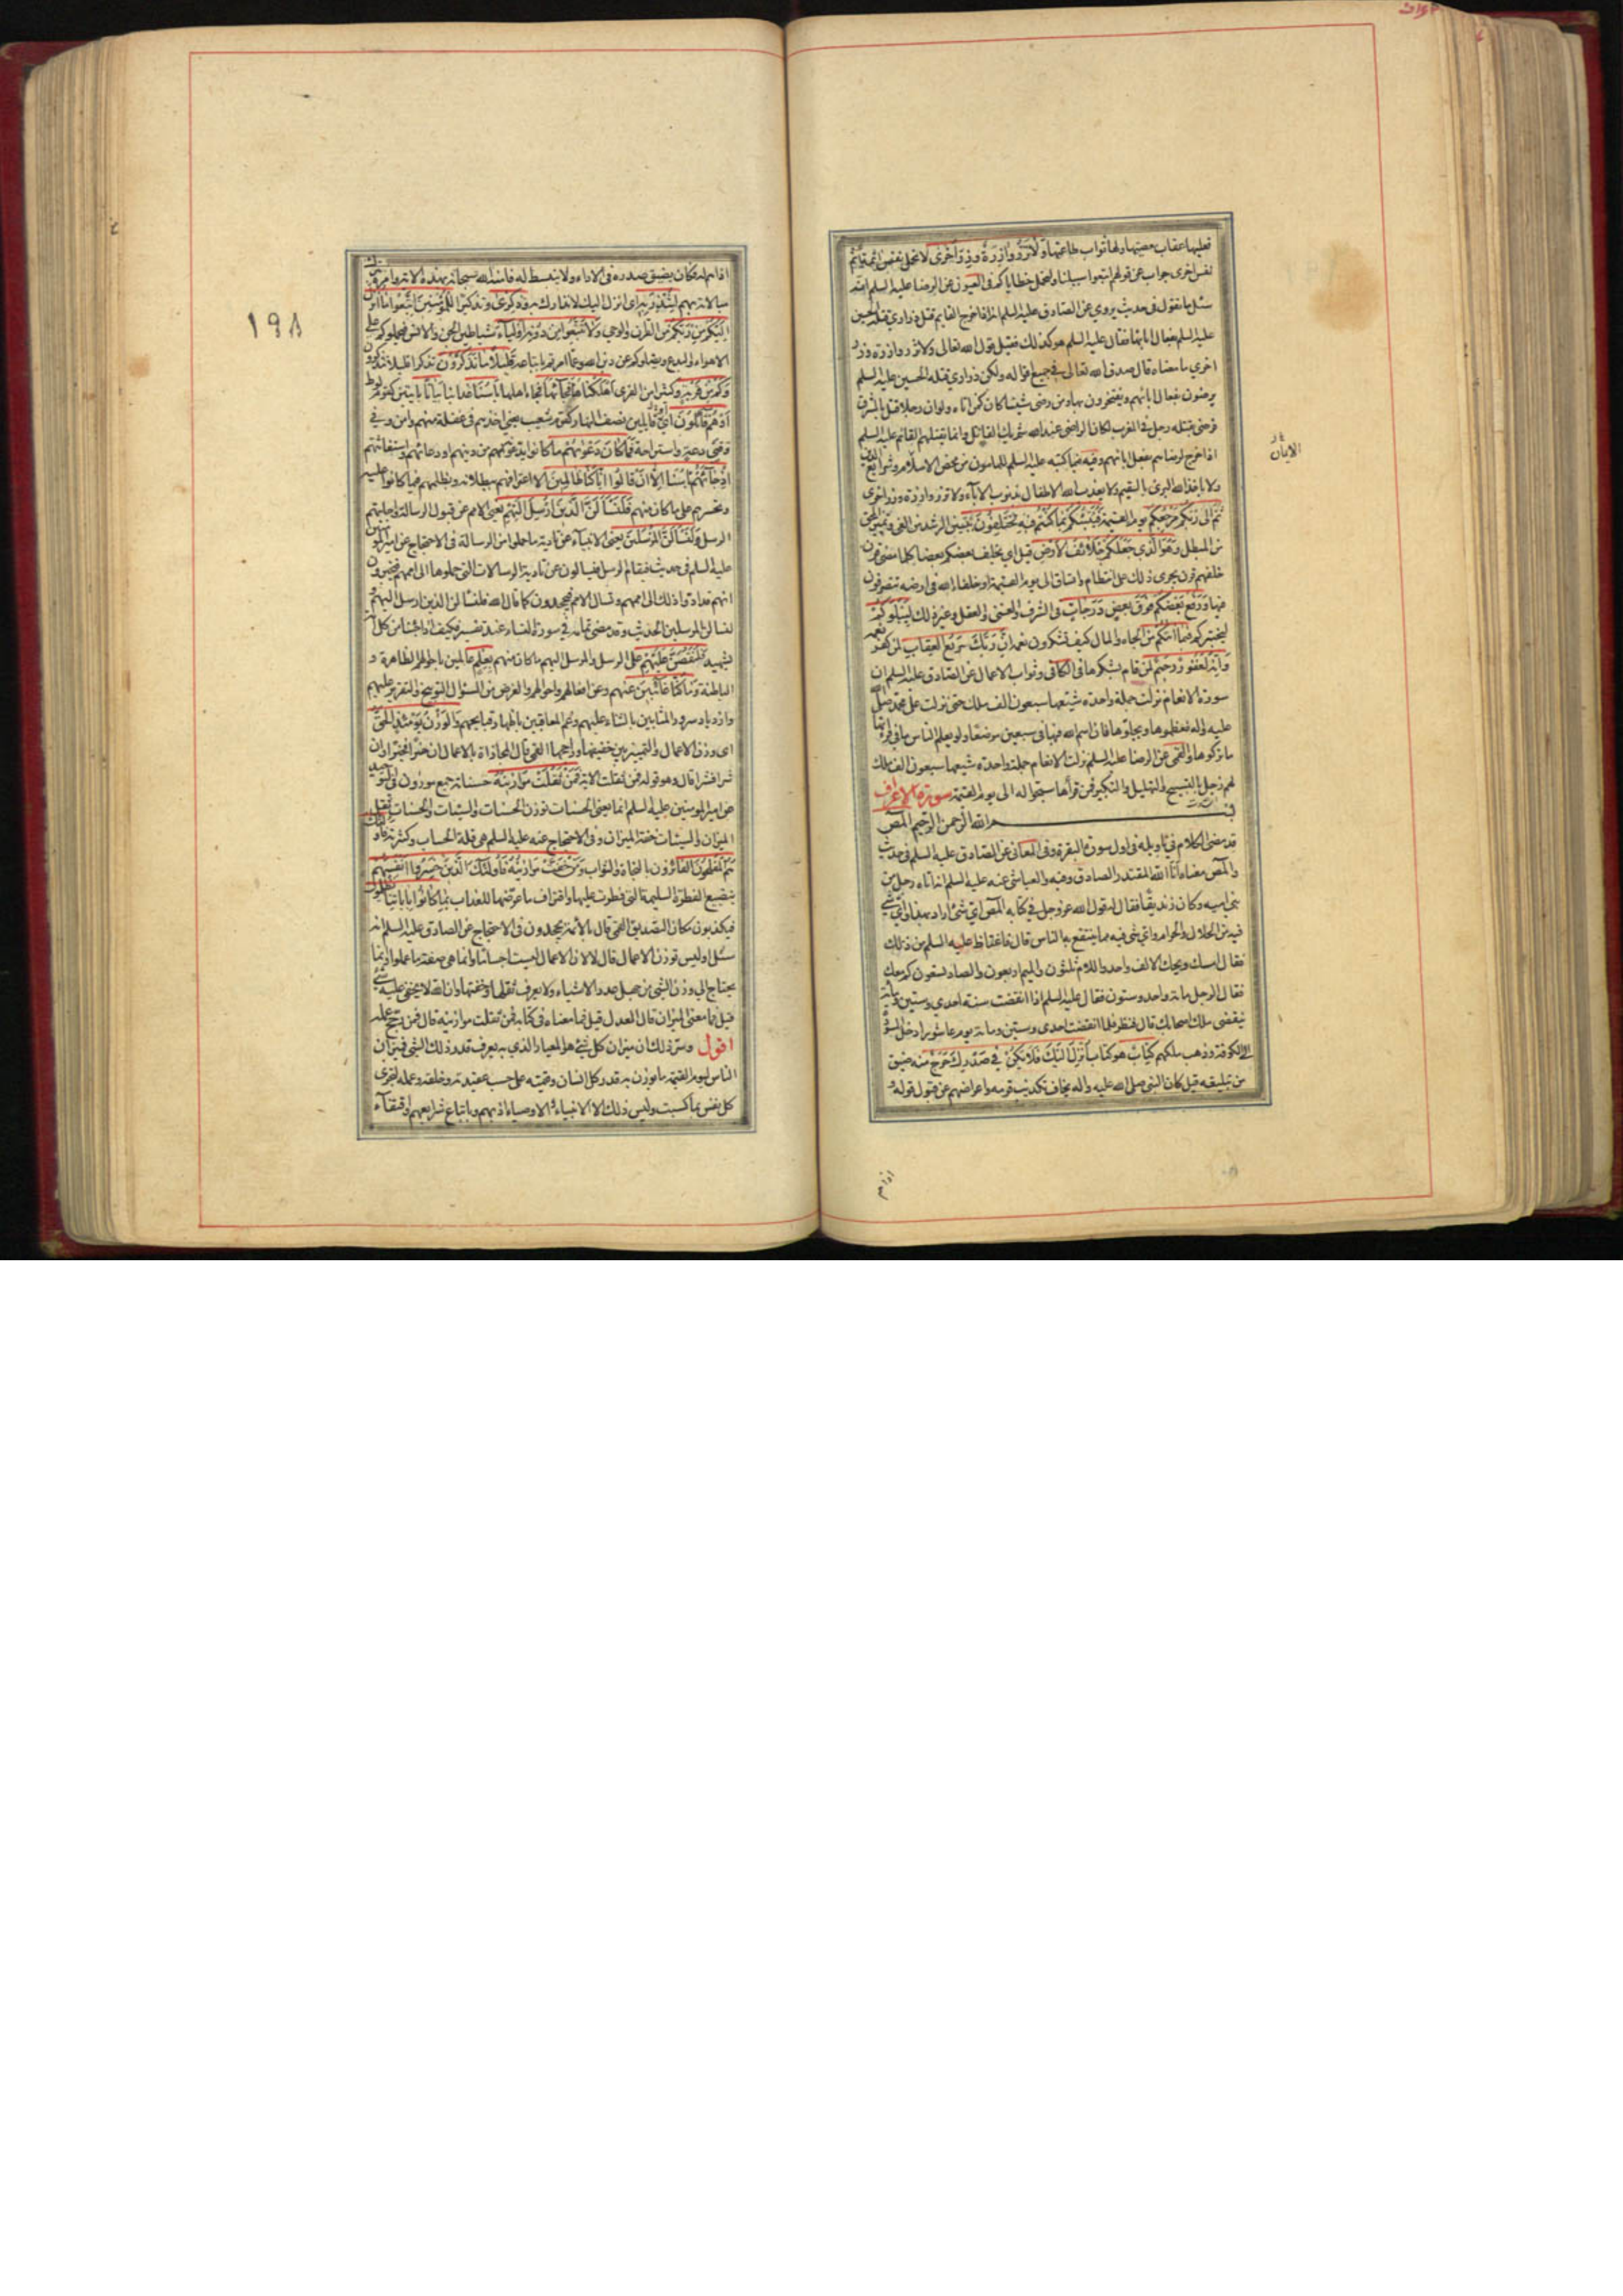 فعليها عقاب معصيتها ولها ثواب طاعتها وَلا تَزِرُ وازِرَةٌ وِزْرَ أُخْرى لا تحمل نفس اثمة اثم
نفس اخرى جواب عن قولهم اتبعوا سبيلنا ولنحمل خطاياكم في العيون عن الرضا عليه السلم انه
سئل ما تقول في حديث يروى عن الصادق عليه السلم انه اذا خرج القايم قتل ذراري قتلة الحسين
عليه السلم بفعال ابائها فقال عليه السلم هو كذلك فقيل قول الله تعالى ولا تزر وازرة وزر
اخرى ما معناه قال صدق الله تعالى في جميع اقواله ولكن ذراري قتلة الحسين عليه السلم
يرضون بفعال ابائهم ويفتخرون بها ومن رضى شيئا كان كمن اتاه ولو ان رجلا قتل بالمشرق
فرضى بقتله رجل في المغرب لكان الراضى عند الله شريك القاتل وانما يقتلهم القائم عليه السلم
اذا خرج لرضاهم بفعل ابائهم وفيه فيما كتبه عليه السلم للمامون من محض الاسلام وشرايع الدين
ولا ياخذ الله البرئ بالسقيم ولا يعذب الله الاطفال بذنوب الاباء ولا تزر وازرة وزر اخرى
ثُمَّ إِلى رَبِّكُمْ مَرْجِعُكُمْ يوم القيمة فَيُنَبِّئُكُمْ بِما كُنْتُمْ فِيهِ تَخْتَلِفُونَ بتبيين الرشد من الغى وتمييز المحق
من المبطل وَهُوَ الَّذِي جَعَلَكُمْ خَلائِفَ الْأَرْضِ قيل اي يخلف بعضكم بعضا كلما مضى قرن
خلفهم قرن يجرى ذلك على انتظام واتساق الى يوم القيمة او خلفاء الله في ارضه تتصرفون
فيها وَرَفَعَ بَعْضَكُمْ فَوْقَ بَعْضٍ دَرَجاتٍ في الشرف والغنى والعقل وغير ذلك لِيَبْلُوَكُمْ
ليختبركم فِي ما آتاكُمْ من الجاه والمال كيف تشكرون نعمه إِنَّ رَبَّكَ سَرِيعُ الْعِقابِ لمن كفر نعمه
وَإِنَّهُ لَغَفُورٌ رَحِيمٌ لمن قام بشكرها في الكافي وثواب الاعمال عن الصادق عليه السلم ان
سورة الانعام نزلت جملة واحدة شيعها سبعون الف ملك حتى نزلت على محمد صلى
عليه واله فعظموها وبجلوها فان اسم الله فيها في سبعين موضعا ولو يعلم الناس ما في قراءتها
ما تركوها والقمى عن الرضا عليه السلم نزلت الانعام جملة واحدة شيعها سبعون الف ملك
لهم زجل بالتسبيح والتهليل والتكبير فمن قرأها سبحوا له الى يوم القيمة سورة الاعراف
بسم الله الرحمن الرحيم المص
قد مضى الكلام في تاويله في اول سورة البقرة وفي المعاني عن الصادق عليه السلم في حديث
والمص معناه انا الله المقتدر الصادق وفيه والعياشى عنه عليه السلم انه اتاه رجل من
بني اميه وكان زنديقا فقال له قول الله عز وجل في كتابه المص اي شئ اراد بهذا واي شئ
فيه من الحلال والحرام واي شئ فيه مما ينتفع به الناس قال فاغتاظ عليه السلم من ذلك
فقال امسك ويحك الالف واحد واللام ثلثون والميم اربعون والصاد تسعون كم معك
فقال الرجل مائة واحد وستون فقال عليه السلم اذا انقضت سنة احدى وستين ومائة
ينقضى ملك اصحابك قال فنظر فلما انقضت احدى وستين ومائة يوم عاشورا دخل المسودة
الكوفة وذهب ملكهم كِتابٌ هو كتاب أُنْزِلَ إِلَيْكَ فَلا يَكُنْ فِي صَدْرِكَ حَرَجٌ مِنْهُ ضيق
من تبليغه قيل كان النبي صلى الله عليه واله يخاف تكذيب قومه واعراضهم عن قبول قوله و
الايتان
اذاهم
١٩٨
اذاهم له فكان يضيق صدره في الاداء ولا ينبسط له فامنه الله سبحانه بهذه الاية وامره بترك
مبالاته بهم لِتُنْذِرَ بِهِ اى انزل اليك لانذارك به وَذِكْرى وتذكيرا لِلْمُؤْمِنِينَ اتَّبِعُوا ما أُنْزِلَ
إِلَيْكُمْ مِنْ رَبِّكُمْ من القران والوحي وَلا تَتَّبِعُوا مِنْ دُونِهِ أَوْلِياءَ شياطين الجن والانس فيحملوكم على
الاهواء والبدع ويضلوكم عن دين الله وعما امرتم باتباعه قَلِيلاً ما تَذَكَّرُونَ تذكرا قليلا تتذكرون
وَكَمْ مِنْ قَرْيَةٍ وكثيرا من القرى أَهْلَكْناها فَجاءَها فجاء اهلها بَأْسُنا عذابنا بَياتاً بايتين كقوم لوط
أَوْ هُمْ قائِلُونَ او قايلين نصف النهار كقوم شعيب يعني اخذهم في غفلة منهم وامن وفي
وقتى دعة واستراحة فَما كانَ دَعْواهُمْ ما كانوا يدعونه من دينهم او دعائهم واستغاثتهم
إِذْ جاءَهُمْ بَأْسُنا إِلاَّ أَنْ قالُوا إِنَّا كُنَّا ظالِمِينَ الا اعترافهم ببطلانه وبظلمهم فيما كانوا عليه
وتحسرهم على ما كان منهم فَلَنَسْئَلَنَّ الَّذِينَ أُرْسِلَ إِلَيْهِمْ يعنى الامم عن قبول الرسالة واجابتهم
الرسل وَلَنَسْئَلَنَّ الْمُرْسَلِينَ يعنى الانبياء عن تادية ما حملوا من الرسالة في الاحتجاج عن امير المؤمنين
عليه السلم في حديث فيقام الرسل فيسالون عن تادية الرسالات التي حملوها الى اممهم فيخبرون
انهم قد ادوا ذلك الى اممهم وتسال الامم فيجحدون كما قال الله فلنسالن الذين ارسل اليهم و
لنسالن المرسلين الحديث وقد مضى تمامه في سورة النساء عند تفسير فكيف اذا جئنا من كل امة
بشهيد فَلَنَقُصَّنَّ عَلَيْهِمْ على الرسل والمرسل اليهم ما كان منهم بِعِلْمٍ عالمين باحوالهم الظاهرة و
الباطنة وَما كُنَّا غائِبِينَ عنهم وعن افعالهم واحوالهم والغرض من السؤال التوبيخ والتقرير عليهم
وازدياد سرور المثابين بالثناء عليهم وغم المعاقبين باظهار قبايحهم وَالْوَزْنُ يَوْمَئِذٍ الْحَقُّ
اى وزن الاعمال والتمييز بين خفيفها وراجحها القمى قال المجازاة بالاعمال ان خيرا فخيرا وان
شرا فشرا قال وهو قوله فمن ثقلت الاية فَمَنْ ثَقُلَتْ مَوازِينُهُ حسناته جمع موزون في التوحيد
عن امير المومنين عليه السلم انما يعنى الحسنات توزن الحسنات والسيئات والحسنات ثقل
الميزان والسيئات خفة الميزان وفي الاحتجاج عنه عليه السلم هي قلة الحساب وكثرته فَأُولئِكَ
هُمُ الْمُفْلِحُونَ الفائزون بالنجاة والثواب وَمَنْ خَفَّتْ مَوازِينُهُ فَأُولئِكَ الَّذِينَ خَسِرُوا أَنْفُسَهُمْ
بتضييع الفطرة السليمة التي فطرت عليها واقتراف ما عرضها للعذاب بِما كانُوا بِآياتِنا يَظْلِمُونَ
فيكذبون مكان التصديق القمى قال بالأئمة يجحدون في الاحتجاج عن الصادق عليه السلم انه
سئل اوليس توزن الاعمال قال لا لان الاعمال ليست اجساما وانما هي صفة ما عملوا وانما
يحتاج الى وزن الشئ من جهل عدد الاشياء ولا يعرف ثقلها وخفتها وان الله لا يخفى عليه شئ
قيل فما معنى الميزان قال العدل قيل فما معناه في كتابه فمن ثقلت موازينه قال فمن رجح عمله
اقول وسر ذلك ان ميزان كل شئ هو المعيار الذي به يعرف قدر ذلك الشئ فميزان
الناس ليوم القيمة ما يوزن به قدر كل انسان وقيمته على حسب عقيدته وخلقه وعمله لتجزى
كل نفس بما كسبت وليس ذلك الا الانبياء والاوصياء اذ بهم وباتباع شرايعهم واقتفاء